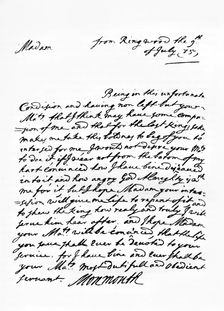 from Ringwood the 9th
of July 85
Madam
Being in this unfortunate
Condition and having non left but your
Ma. that I think may have some Compa-
sion of me. and that for the last kings sake
makes me take this boldnes to beg of you to
intersed for me. I would not desire your Ma.
to doe it if I wear not from the botom of my
hart convinced how I have bene disceaved
into it and how angry God Almighty is with
me for it but I hope Madam your inter-
sesion will give me life to repent of it and
to shew the king how realy and truly I will
serve him hear after. and I hope Madam
your Ma. will be convinced that the life
you save shall Ever be devoted to your
service. for I have bine and Ever shall be
your Ma. most dutifull and obedient
servant. Monmouth